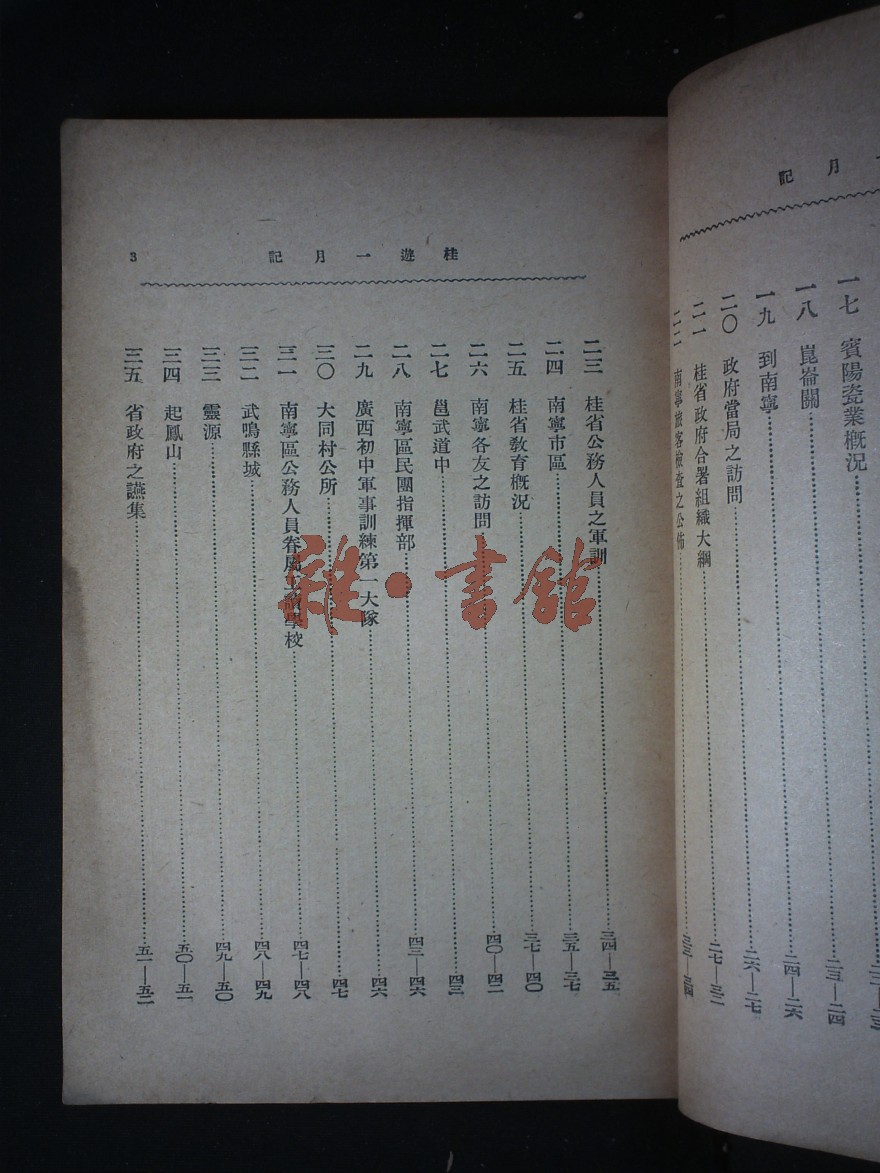 月記
一七 賓陽瓷業概況
一八 崑崙關……二三—二四
一九 到南寧……二四—二六
二〇 政府當局之訪問……二六—二七
二一 桂省政府合署組織大綱……二七—三二
二二 南寧旅客檢查之公佈……三三—三四
桂遊一月記 3
二三 桂省公務人員之軍訓……三四—三五
二四 南寧市區……三五—三七
二五 桂省教育概況……三七—四〇
二六 南寧各友之訪問……四〇—四二
二七 邕武道中……四三
二八 南寧區民團指揮部……四三—四六
二九 廣西初中軍事訓練第一大隊……四六
三〇 大同村公所……四七
三一 南寧區公務人員眷屬工讀學校……四七—四八
三二 武鳴縣城……四八—四九
三三 靈源……四九—五〇
三四 起鳳山……五〇—五一
三五 省政府之讌集……五一—五二
雜·書館